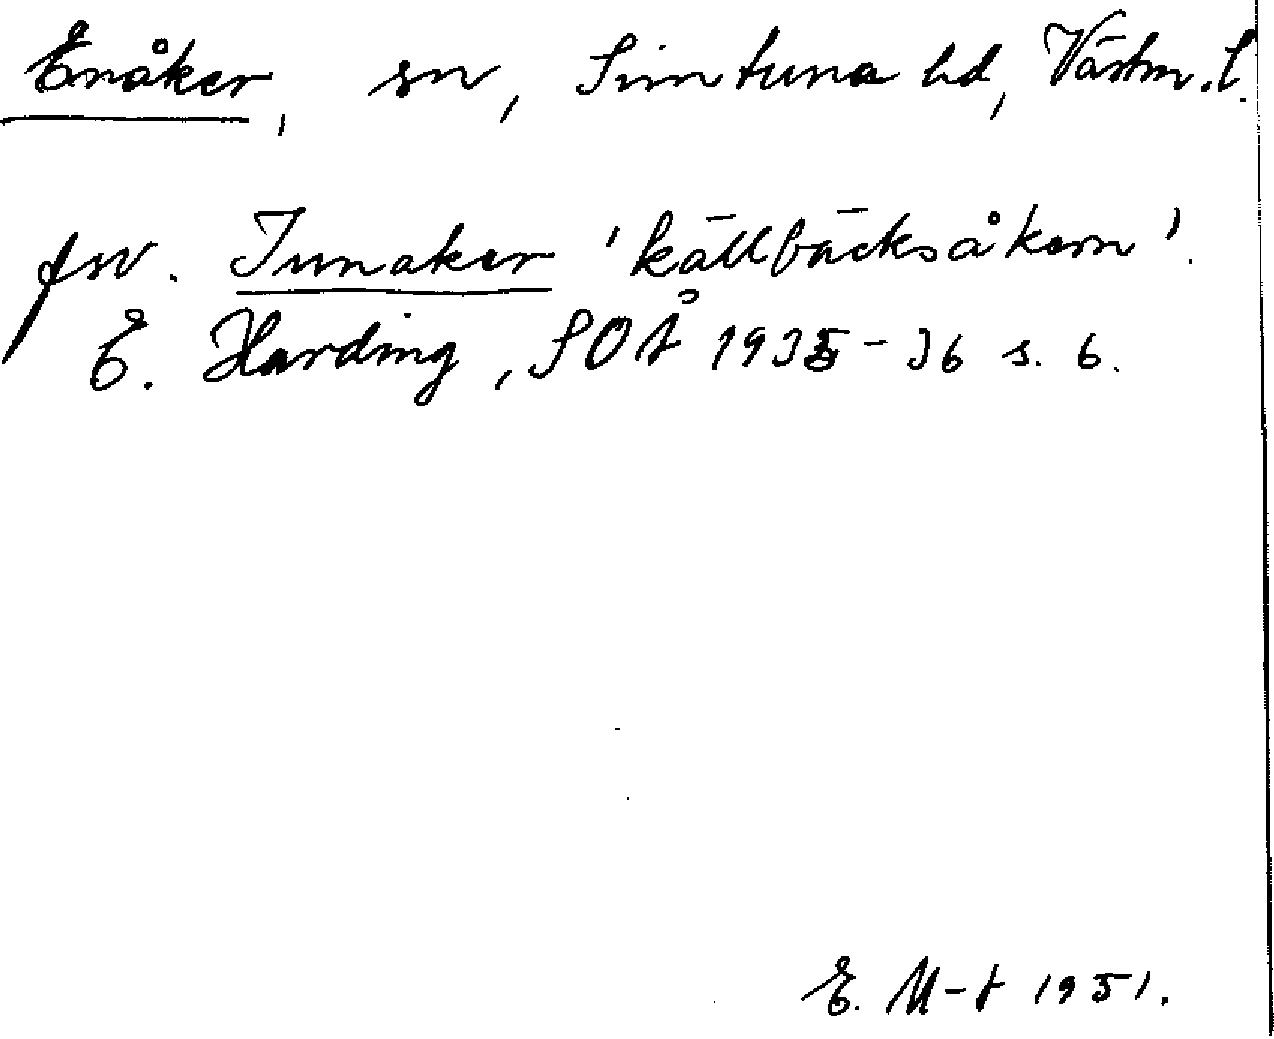 Enåker, sn, Simtuna hd, Västm. l.
fsv. Innaker 'källbäcksåkern'.
E. Harding, SOÅ 1935-36 s. 6.
E. M-t 1951.